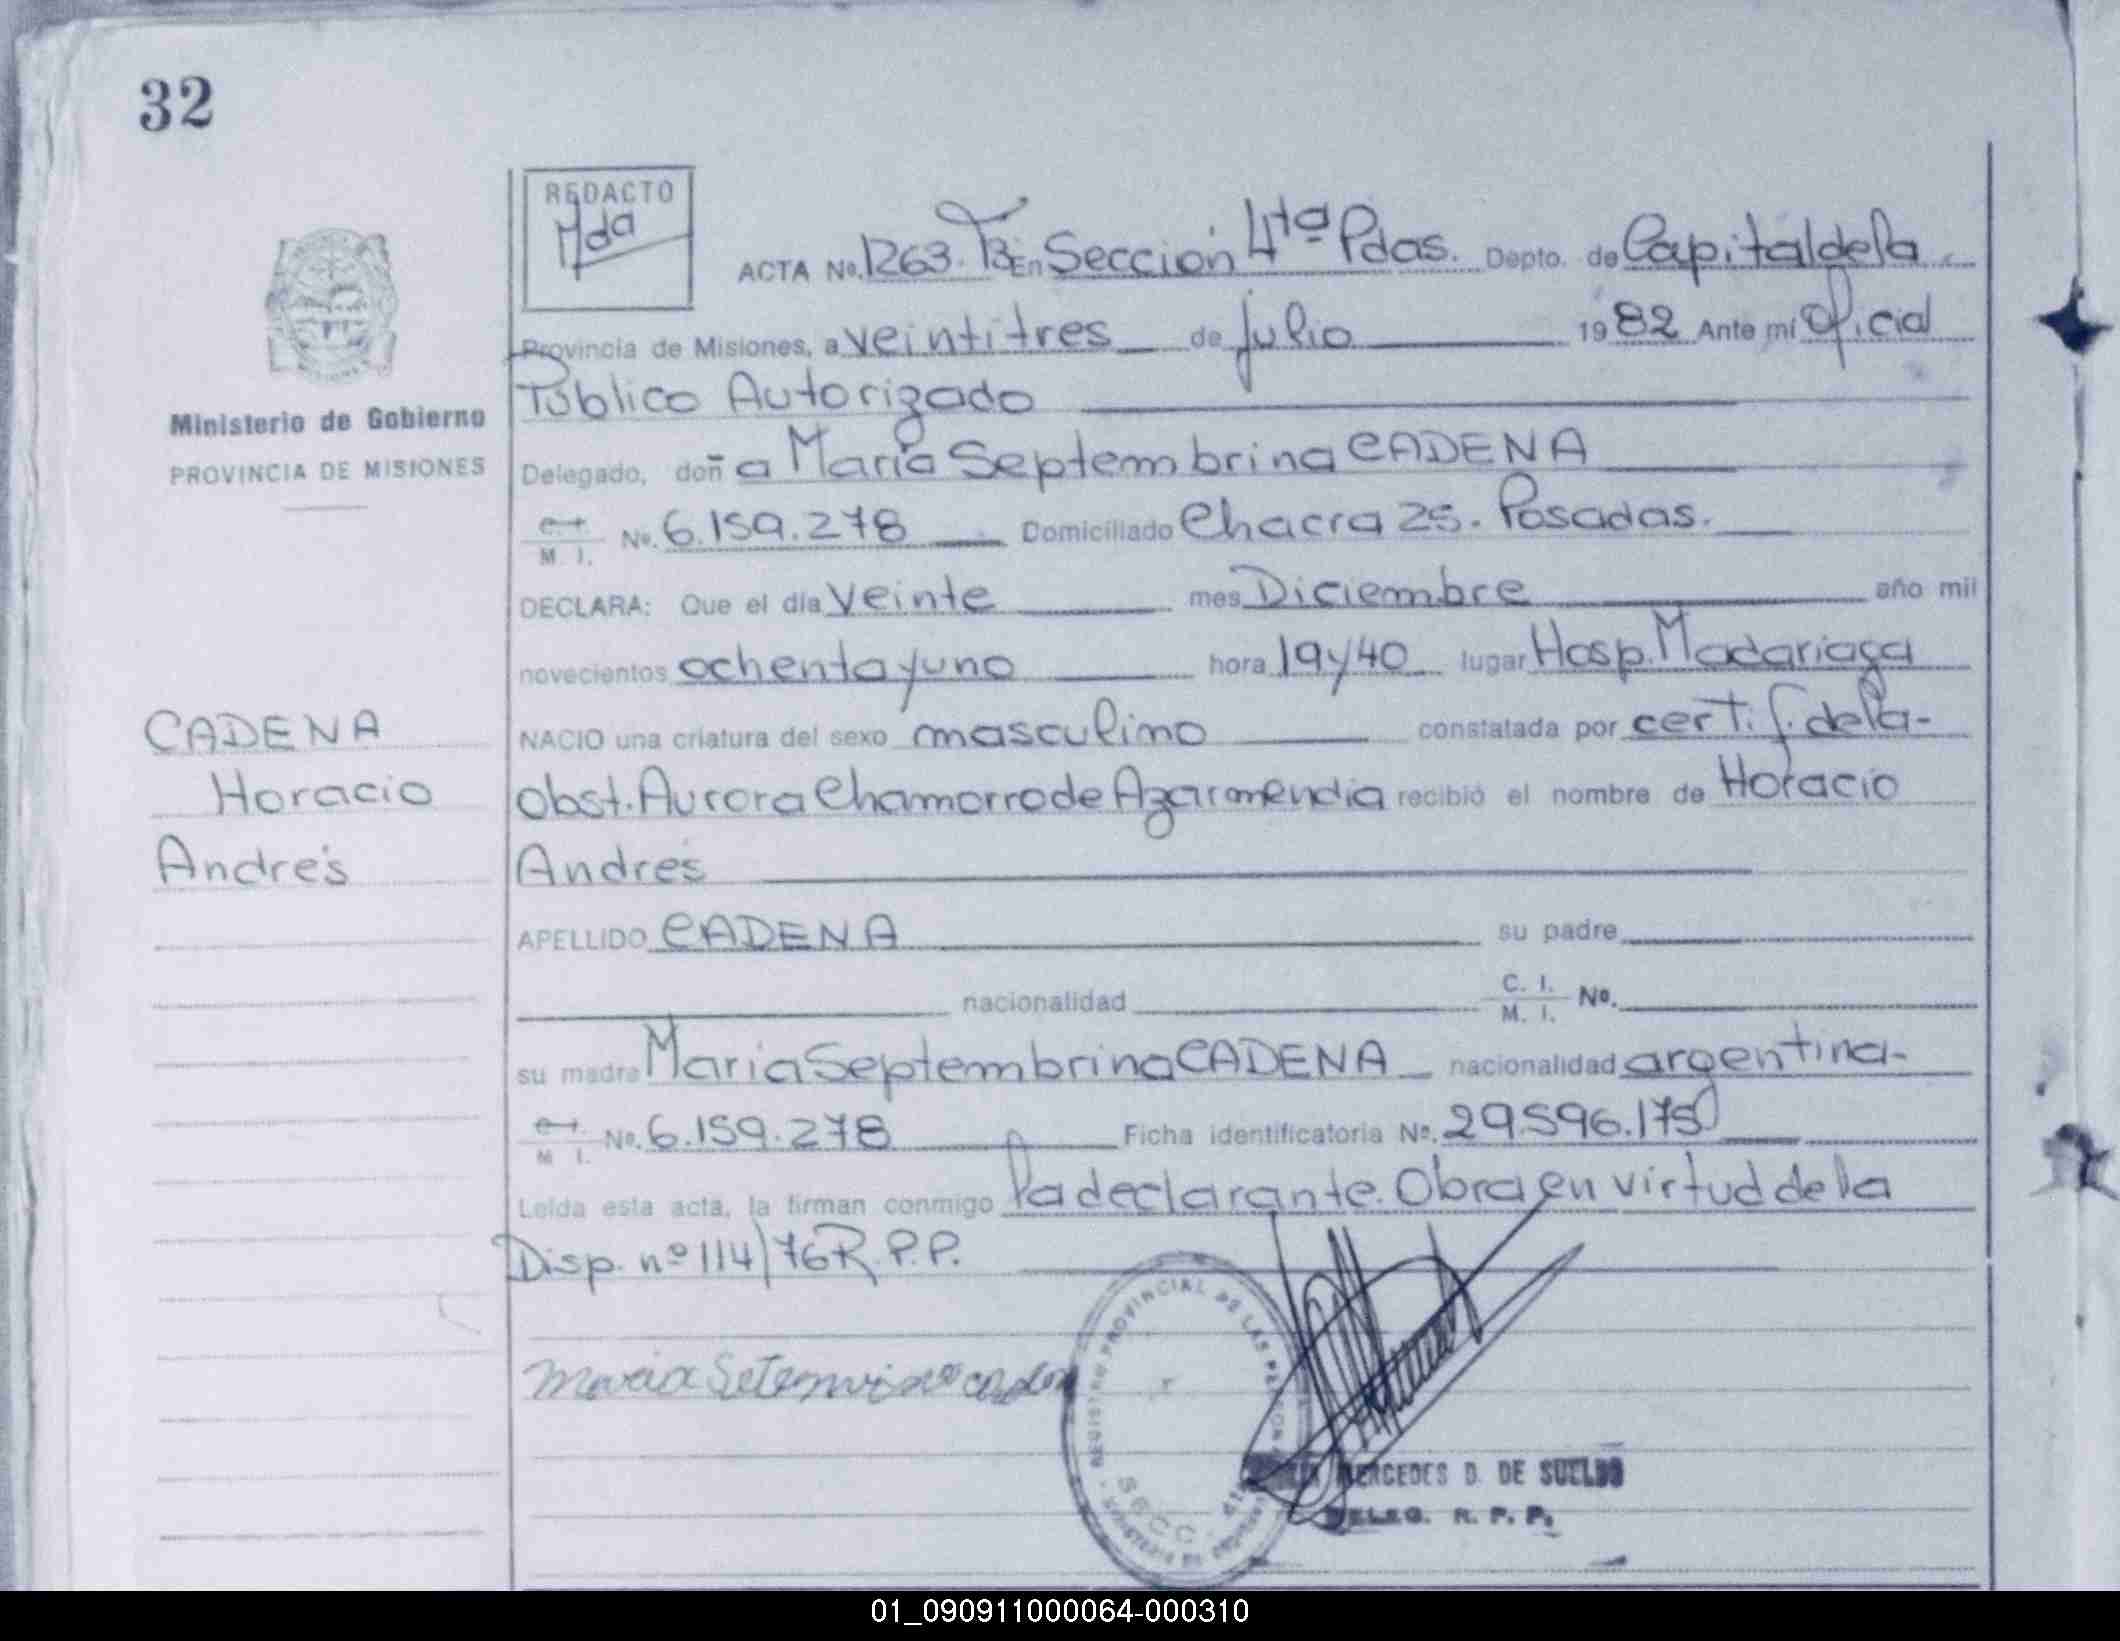 32
REDACTO
Mda
ACTA No. 1263. T3 En Sección 4ta Pdas. Depto. de Capital de la
Provincia de Misiones, a veintitres de Julio 1982 Ante mí Oficial
Público Autorizado
Ministerio de Gobierno
PROVINCIA DE MISIONES
Delegado, doña María Septembrina CADENA
C. I. / M. I. No. 6.159.278 Domiciliado Chacra 25. Posadas.
DECLARA: Que el día veinte mes Diciembre año mil
novecientos ochenta y uno hora 19y40 lugar Hosp. Madariaga
CADENA
Horacio
Andrés
NACIO una criatura del sexo masculino constatada por certif. de la-
obst. Aurora Chamorro de Azarmendia recibió el nombre de Horacio
Andrés
APELLIDO CADENA su padre
nacionalidad C. I. / M. I. No.
su madre María Septembrina CADENA nacionalidad argentina-
C. I. / M. I. No. 6.159.278 Ficha identificatoria No. 29.596.175
Leída esta acta, la firman conmigo la declarante. Obra en virtud de la
Disp. nº 114/76 R.P.P.
Maria
REGISTRO PROVINCIAL DE LAS PERSONAS
SECC. 4ta
MERCEDES D. DE SUELDO
DELEG. R. P. P.
01_090911000064-000310